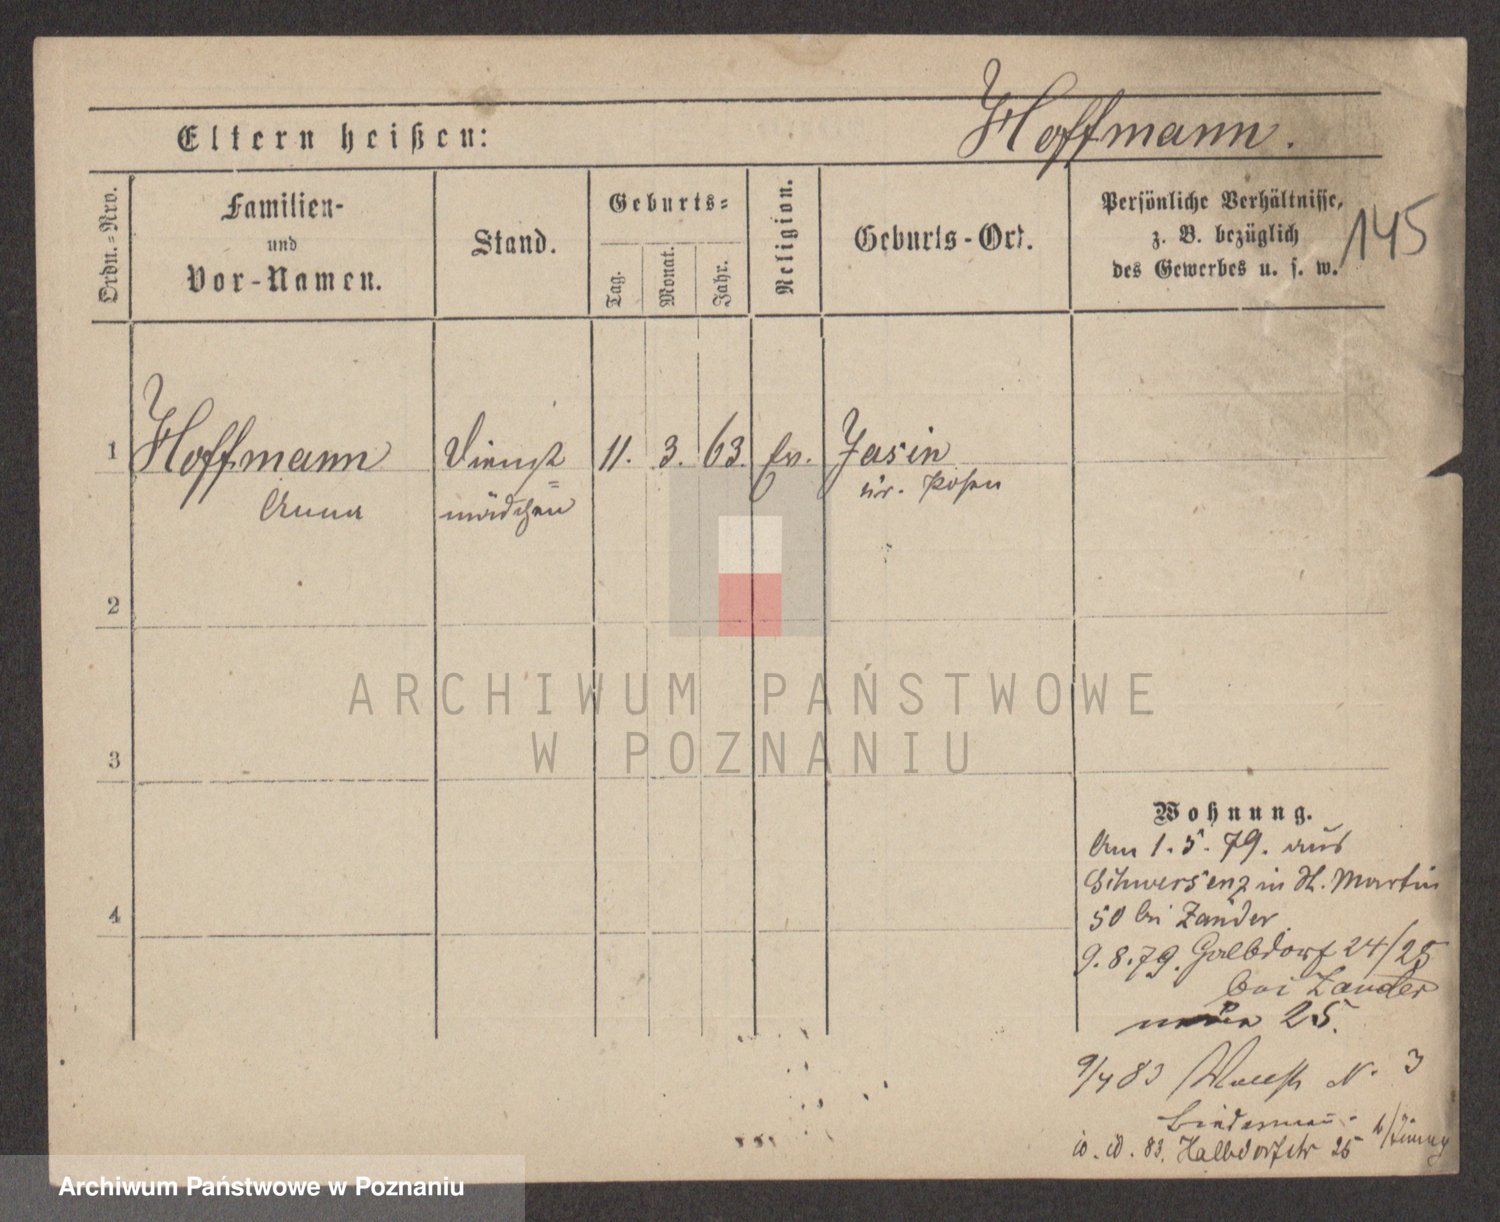 Hoffmann.
Eltern heißen:
Ordn.=Nro.
Familien-
und
Vor-Namen.
Stand.
Geburts=
Tag.
Monat.
Jahr.
Religion.
Geburts-Ort.
Persönliche Verhältnisse,
z. B. bezüglich
des Gewerbes u. s. w.
145
1 Hoffmann Dienst 11. 3. 63. Ev. Jasin
Anna =mädchen Kr. Posen
2
ARCHIWUM PAŃSTWOWE
W POZNANIU
3
Wohnung.
Am 1.5.79. aus
Schwersenz in St. Martin
4
50 bei Zander
9.8.79. Halbdorf 24/25
bei Zander
25.
9/4 83 N. 3
Lindemann
83. Halbdorfstr 25
Archiwum Państwowe w Poznaniu